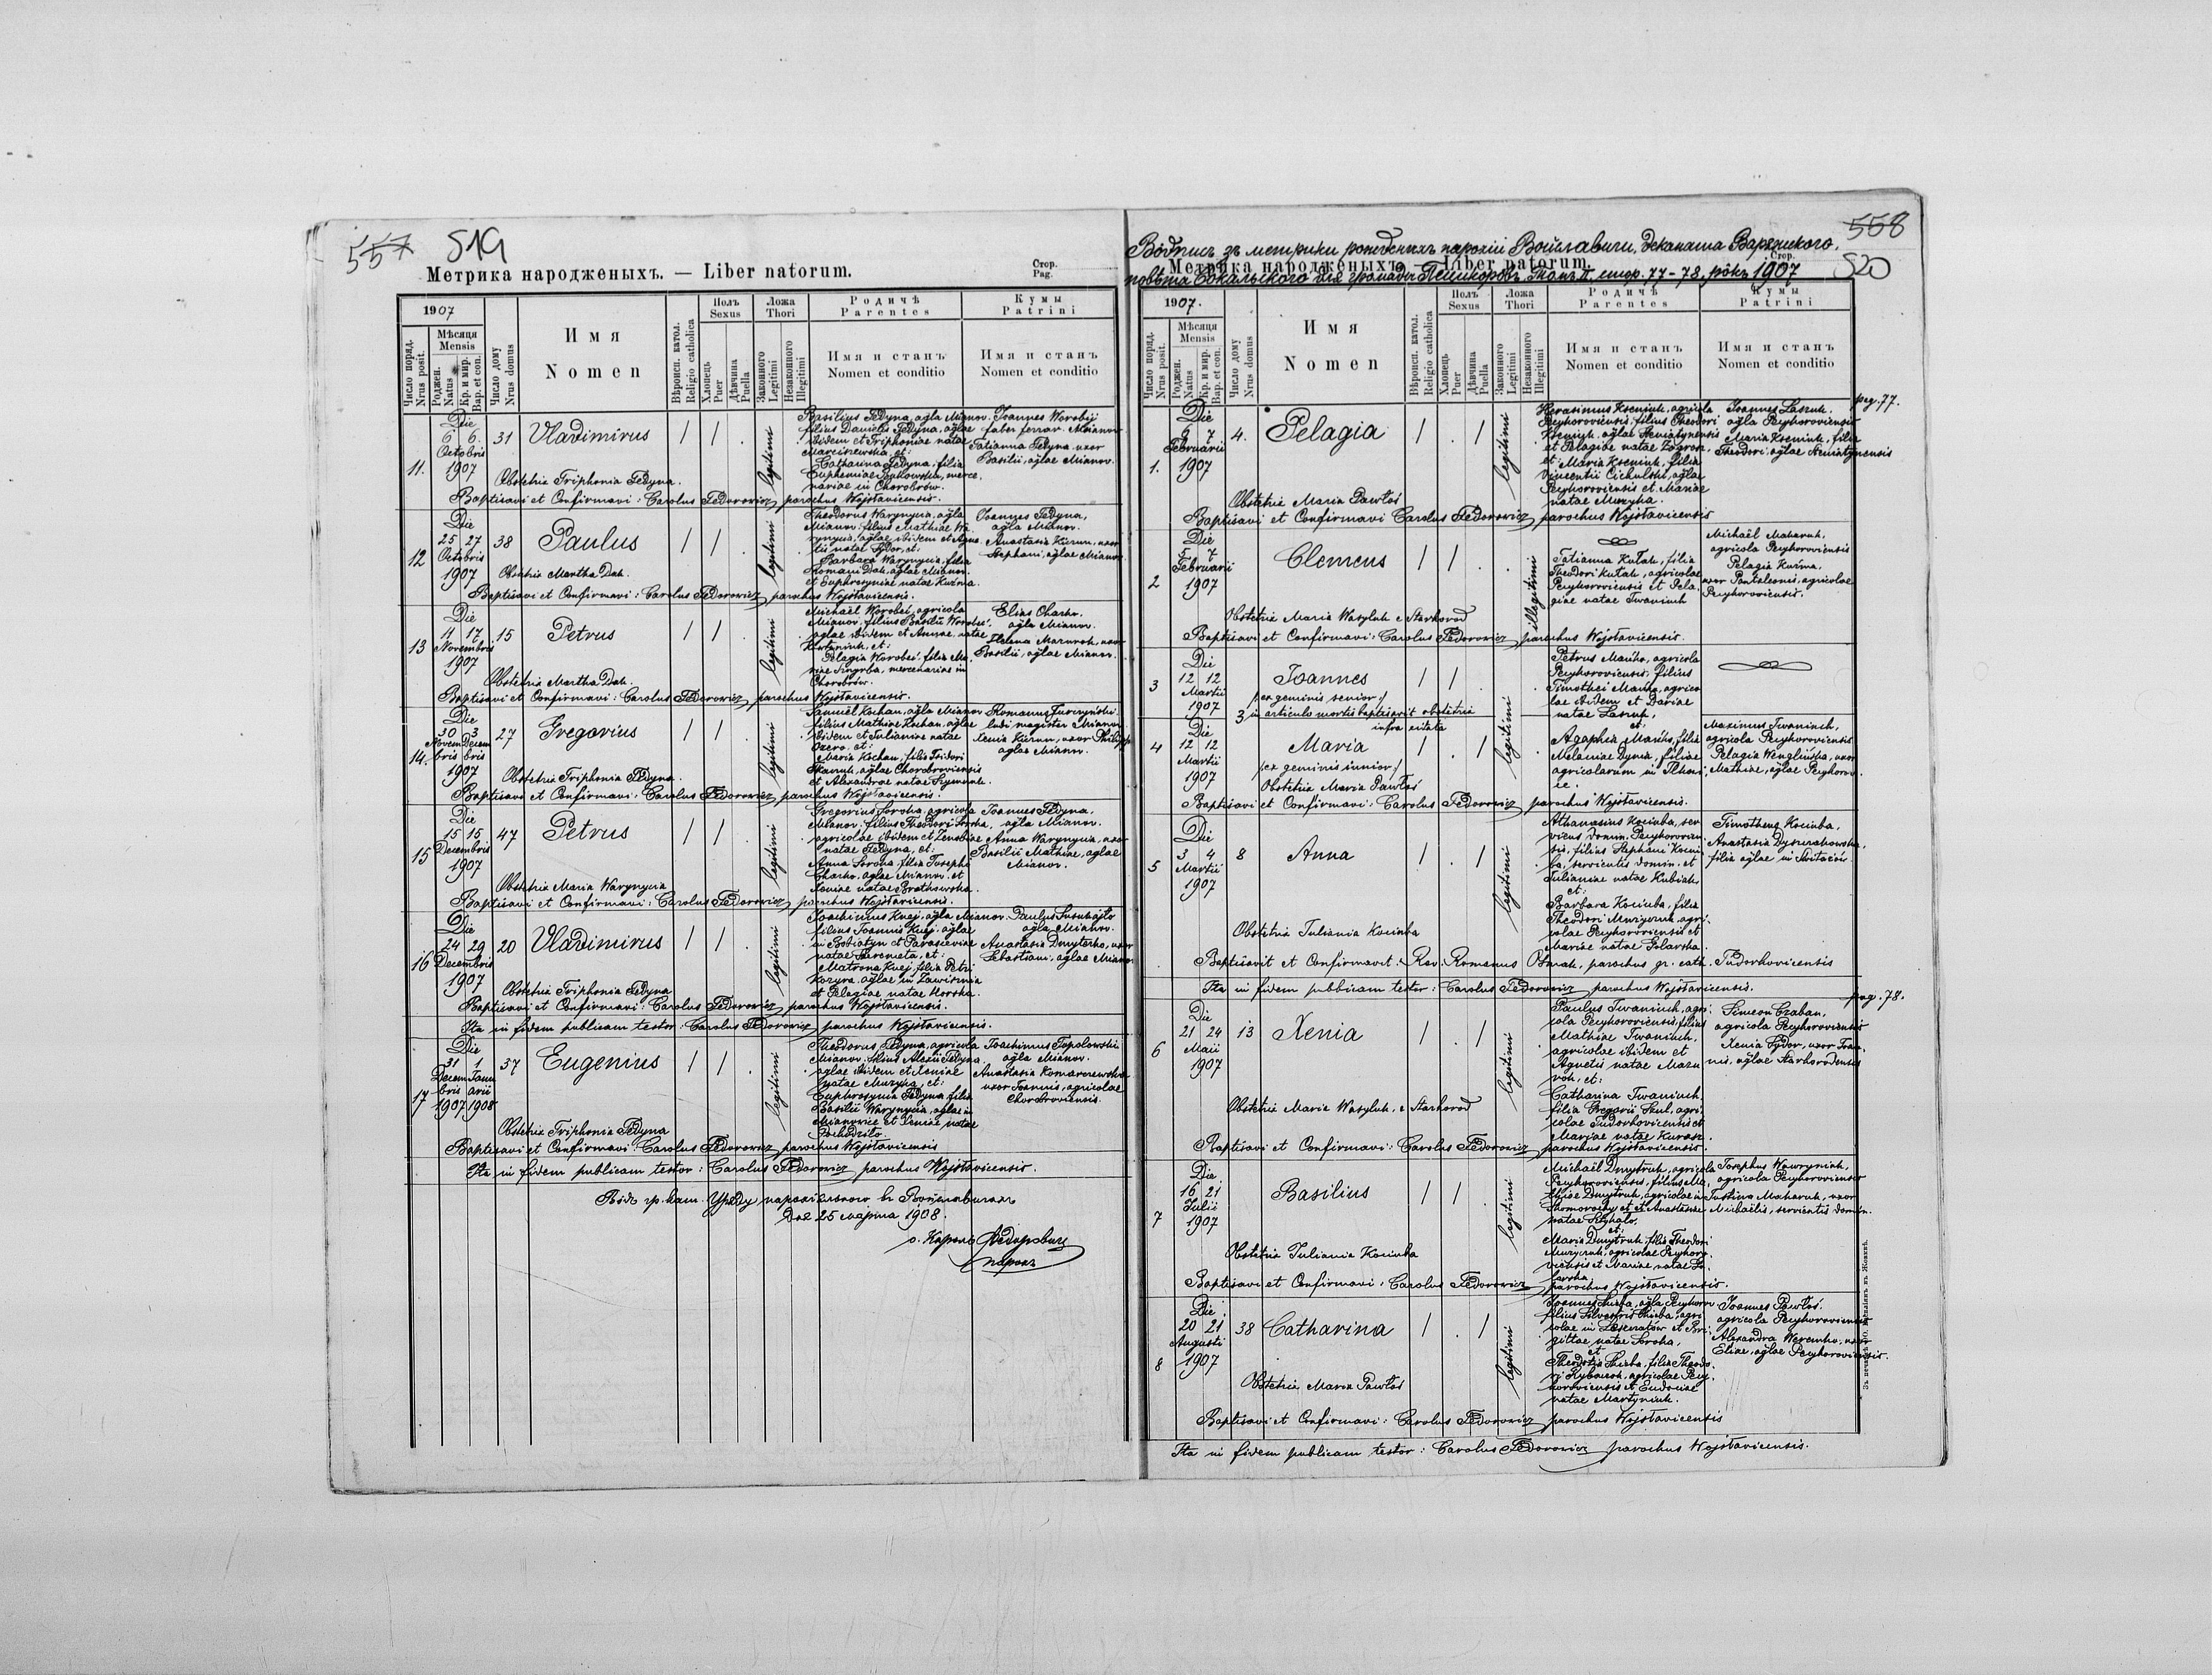 557 519
Метрика народженыхъ. — Liber natorum.
Стор.
Pag.
1907
Число поряд.
Nrus posit.
Мѣсяця
Mensis
Роджен.
Natus
Кр. и мир.
Bap. et con.
Число дому
Nrus domus
Имя
Nomen
Вѣроисп. катол.
Religio catholica
Полъ
Sexus
Хлопець
Puer
Дѣвчина
Puella
Ложа
Thori
Законного
Legitimi
Незаконного
Illegitimi
Родичѣ
Parentes
Имя и станъ
Nomen et conditio
Кумы
Patrini
Имя и станъ
Nomen et conditio
11.
Die
6 6.
Octobris
1907
31 Vladimirus 1 1 . legitimi
Basilius Fedyna, agla Mianov.
filius Danielis Fedyna, aglae
ibidem et Triphoniae natae
Marciszewska, et:
Catharina Fedyna, filia
Euphemiae
nariae in Chorobrów.
Joannes Worobij
faber ferrar. Mianov.
Tatianna Fedyna uxor
Basilii, aglae Mianov.
Obstetrix Triphonia Fedyna.
Baptisavi et Confirmavi: Carolus Fedorowicz parochus Wojsławicensis.
12
Die
25 27
Octobris
1907
38 Paulus 1 1 . legitimi
Theodorus Warynycia, agla
Mianov. filius Mathiae Wa
rynycia, aglae ibidem et
natae Sydor, et:
Barbara Warynycia, filia
Romani Dak, aglae Mianov.
et Euphrosyniae natae Kuźma.
Joannes Fedyna,
agla Mianov.
Anastasia Kierun, uxor
Stephani, aglae Mianov.
Obstetrix Martha Dak.
Baptisavi et Confirmavi: Carolus Fedorowicz parochus Wojsławicensis.
13
Die
11 17
Novembris
1907
15 Petrus 1 1 . legitimi
Michaël Worobeć, agricola
Mianov. filius Basilii Worobeć
aglae ibidem et Annae, natae
et:
Pelagia Worobeć, filia Ma
riae mercenariae in
Chorobrów.
Elias Charko.
agla Mianov.
Helena Mazurok, uxor
Basilii, aglae Mianov.
Obstetrix Martha Dak.
Baptisavi et Confirmavi: Carolus Fedorowicz parochus Wojsławicensis.
14.
Die
30 3
Novem Decem
bris bris
1907
27 Gregorius 1 1 . legitimi
Samuël Kochan, agla Mianov
filius Mathiae Kochan, aglae
ibidem et Julianiae natae
Ozero, et:
Maria Kochan, filia Isidori
aglae Chorobroviensis
et Alexandrae natae Szymonek.
Romanus Jurczyński
ludi magister Mianov.
Xenia Kierun, uxor Philippi
aglae Mianov.
Obstetrix Triphonia Fedyna.
Baptisavi et Confirmavi: Carolus Fedorowicz parochus Wojsławicensis.
15
Die
15 15
Decembris
1907
47 Petrus 1 1 . legitimi
Gregorius Soroka, agricola
Mianov. filius Theodori Soroka,
agricolae ibidem et Zenobiae
natae Fedyna, et:
Anna Soroka, filia Josephi
Charko, aglae Mianov. et
Xeniae natae Bratkowska.
Joannes Fedyna,
agla Mianov.
Anna Warynycia, uxor
Basilii Mathiae, aglae
Mianov.
Obstetrix Maria Warynycia
Baptisavi et Confirmavi: Carolus Fedorowicz parochus Wojsławicensis.
16
Die
24 29
Decembris
1907
20 Vladimirus 1 1 . legitimi
Joachimus Kuej, agla Mianov.
filius Joannis Kuej, aglae
in Bobiatyn et Parasceviae
natae et:
Matrona Kuej, filia Petri
Kozyra, aglae in Zawisznia
et Pelagiae natae Horska.
Paulus
agla Mianov.
Anastasia Dmyterko, uxor
Sebastiani, aglae Mianov
Obstetrix Triphonia Fedyna
Baptisavi et Confirmavi: Carolus Fedorowicz parochus Wojsławicensis.
Ita in fidem publicam testor: Carolus Fedorowicz parochus Wojsławicensis.
17
Die
31 1
Decem Janu
bris arii
1907 1908
37 Eugenius 1 1 . legitimi
Theodorus Fedyna, agricola
Mianov. filius Alexii Fedyna
aglae ibidem et Xeniae
natae Muzyka, et:
Euphrosynia Fedyna filia
Basilii Warynycia, aglae in
Mianovice et Xeniae natae
Joachimus Topolowski
agla Mianov.
Anastasia Komarczewska
uxor Joannis, agricolae
Chorobroviensis.
Obstetrix Triphonia Fedyna
Baptisavi et Confirmavi: Carolus Fedorowicz parochus Wojsławicensis
Ita in fidem publicam testor: Carolus Fedorowicz parochus Wojsławicensis.
Вôдъ гр. кат. Уряду парохіяльного въ Войславичахъ
Дня 25 марта 1908.
о. Кароль Федорович
парохъ
558
520
Вôдпись зъ метрики рожденыхъ парохіи Войславичи, деканата Варяжского,
повѣта Сокальского для громады Пѣшкоровъ Томъ II. стор. 77-78, рôкъ 1907
Метрика народженыхъ. — Liber natorum.
Стор.
1907.
Число поряд.
Nrus posit.
Мѣсяця
Mensis
Роджен.
Natus
Кр. и мир.
Bap. et con.
Число дому
Nrus domus
Имя
Nomen
Вѣроисп. катол.
Religio catholica
Полъ
Sexus
Хлопець
Puer
Дѣвчина
Puella
Ложа
Thori
Законного
Legitimi
Незаконного
Illegitimi
Родичѣ
Parentes
Имя и станъ
Nomen et conditio
Кумы
Patrini
Имя и станъ
Nomen et conditio
pag. 77.
1.
Die
6 7
Februarii
1907
4. Pelagia 1 . 1 legitimi
Herasimus Kseniuk, agricola
Peryhoroviensis, filius Theodori
Kseniuk, aglae Steniatynensis
et Pelagiae natae
et: Maria Kseniuk, filia
Vincentii Cichulski, aglae
Peryhoroviensis et Mariae
natae Muzyka.
Joannes Laszuk,
agla Peryhoroviensis
Maria Kseniuk, filia
Theodori, aglae Steniatynensis
Obstetrix Maria Pawłoś
Baptisavi et Confirmavi Carolus Fedorowicz parochus Wojsławicensis
2
Die
5 7
Februarii
1907
Clemens 1 1 . . illegitimi
Tatianna Kułak, filia
Theodori Kułak, agricolae
Peryhoroviensis et Pela
giae natae Iwaniuk
Michaël Makaruk,
agricola Peryhoroviensis
Pelagia Kuźma,
uxor Pantaleonis, agricolae
Peryhoroviensis.
Obstetrix Maria Wasyluk e Starhorod
Baptisavi et Confirmavi: Carolus Fedorowicz parochus Wojsławicensis.
3
Die
12 12
Martii
1907
Joannes 1 1 .
/ex geminis senior/
3 in articulo mortis baptisavit obstetrix
infra citata
4
Die
12 12
Martii
1907
Maria 1 . 1 legitimi
/ex geminis iunior/
Petrus Mańko, agricola
Peryhoroviensis, filius
Timothei Mańko, agrico
lae ibidem et Dariae
natae Laszuk,
et:
Agaphia Mańko, filia
Melaniae Dynia, filiae
agricolarum in
Maximus Iwaniuk,
agricola Peryhoroviensis
Pelagia Węglińska, uxor
Mathiae, aglae Peryhorov.
Obstetrix Maria Pawłoś
Baptisavi et Confirmavi: Carolus Fedorowicz parochus Wojsławicensis.
5
Die
3 4
Martii
1907
8 Anna 1 . 1 legitimi
Athanasius Kociuba, ser
viens domin. Peryhorovien
sis, filius Stephani Kociu
ba, servientis domin. et
Julianiae natae Kubiak
et:
Barbara Kociuba, filia
Theodori Muzyczuk, agri
colae Peryhoroviensis et
Mariae natae Solarska.
Timotheus Kociuba,
Anastasia
filia aglae in
Obstetrix Juliania Kociuba
Baptisavit et Confirmavit: Rev. Romanus parochus gr. cath. Tudorkovicensis
Ita in fidem publicam testor: Carolus Fedorowicz parochus Wojsławicensis.
pag. 78.
6
Die
21 24
Maii
1907
13 Xenia 1 . 1 legitimi
Paulus Iwaniuk, agri
cola Peryhoroviensis, filius
Mathiae Iwaniuk,
agricolae ibidem et
Agnetis natae Mazu
rok, et:
Catharina Iwaniuk
filia Gregorii Szul, agri
colae Tudorkovicensis et
Mariae natae Kurasz.
Simeon Czaban,
agricola Peryhoroviensis
Xenia Sydor, uxor Joan
nis, aglae Starhorodensis
Obstetrix Maria Wasyluk, e Starhorod
Baptisavi et Confirmavi: Carolus Fedorowicz parochus Wojsławicensis.
7
Die
16 21
Julii
1907
Basilius 1 1 . legitimi
Michaël Dmytruk, agricola
Peryhoroviensis, filius Ma
thiae Dmytruk, agricolae in
et Anastasiae
natae
et:
Maria Dmytruk, filia Theodori
Muzyczuk, agricolae Peryhoro
viensis et Mariae natae So
larska
Josephus Wawryniuk,
agricola Peryhoroviensis
Justina Makaruk, uxor
Michaëlis, servientis domin.
Obstetrix Juliania Kociuba
Baptisavi et Confirmavi: Carolus Fedorowicz parochus Wojsławicensis.
8
Die
20 21
Augusti
1907
38 Catharina 1 . 1 legitimi
Joannes Skiba, agla Peryhorov
filius Silvestris Skiba, agri
colae in et Bri
gittae natae Soroka,
et
Theodosia Skiba, filia Theodo
ri agricolae Pery
horoviensis et Eudociae
natae Martyniuk.
Joannes Pawłoś,
agricola Peryhoroviensis
Alexandra Weremko, uxor
Eliae, aglae Peryhoroviensis.
Obstetrix Maria Pawłoś
Baptisavi et Confirmavi: Carolus Fedorowicz parochus Wojsławicensis
Ita in fidem publicam testor: Carolus Fedorowicz parochus Wojsławicensis.